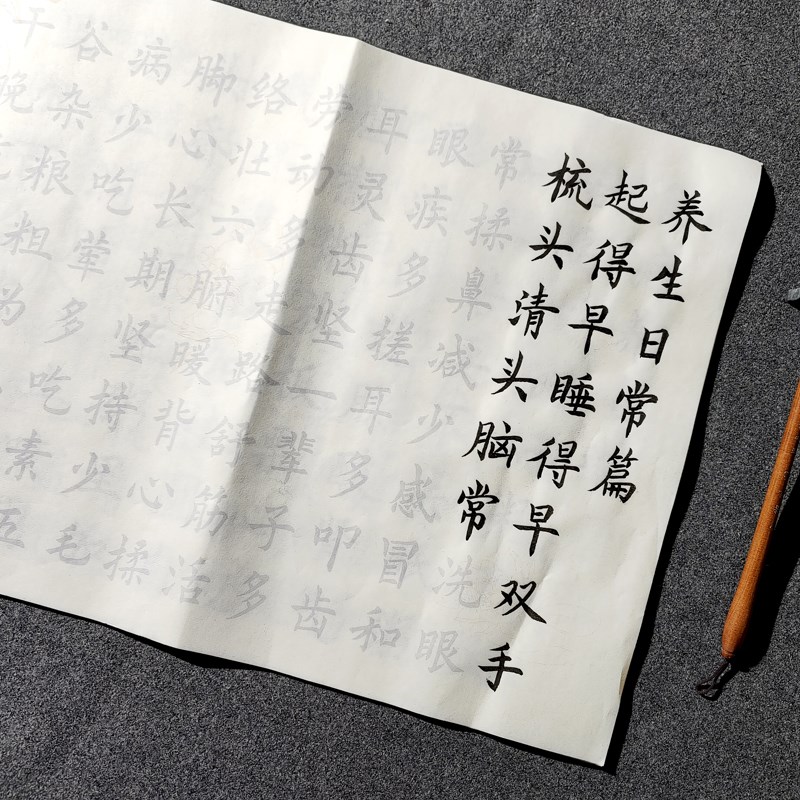 养生日常篇
起得早睡得早双手
梳头清头脑常洗眼
常揉鼻减少感冒和
眼疾多搓耳多叩齿
耳灵齿坚一辈子多
劳动多走路舒筋活
络壮六腑暖背心揉
脚心长期坚持少毛
病少吃荤多吃素五
谷杂粮粗为
晚